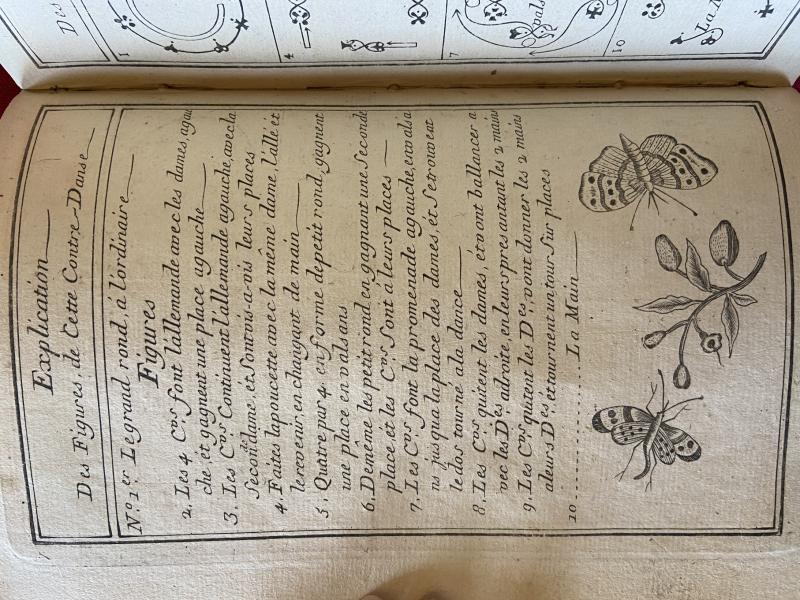 Explication
Des Figures de Cette Contre-Danse
N.º 1.er Le grand rond, á l'ordinaire
Figures
2. Les 4 C.vrs font l'allemande avec les dames, a gau
che, et gagnent une place a gauche
3. Les C.vrs Continuent l'allemande a gauche, avec la
Second.de dame, et Sont vis-a-vis leurs places
4. Faites la poucette avec la même dame, l'allé et
le revenir en changant de main
5. Quatre par 4. en forme de petit rond, gagnent
une place en valsans
6. De même les petit rond en gagnant une Seconde
place, et les C.vrs Sont a leurs places
7. Les C.vrs font la promenade a gauche, en valsa
ns jus qua la place des dames, et Se trouv ent
le dos tourné a la dance
8. Les C.vrs quitent les dames, et vont ballancer a
vec les D.es a droite, en leurs pres antant les 2 mains
9. Les C.vrs quitent les D.es, vont donner les 2 mains
a leurs D.es et tournent un tour Sur places
10 La Main
Des
1
4
7
10
La M